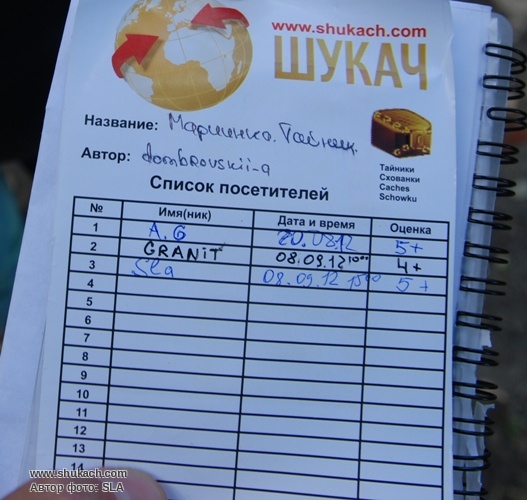 www.shukach.com
ШУКАЧ
Название: Марьинка. Тайник.
Автор: dombrovskii-a
Тайники
Схованки
Caches
Schowku
Список посетителей
№ Имя(ник) Дата и время Оценка
1 A.G 20.08.12 5+
2 GRANiT 08.09.12 10⁰⁰ 4+
3 Sla 08.09.12 15⁰⁰ 5+
4
5
6
7
8
9
10
11
12
13
14
www.shukach.com
Автор фото: SLA